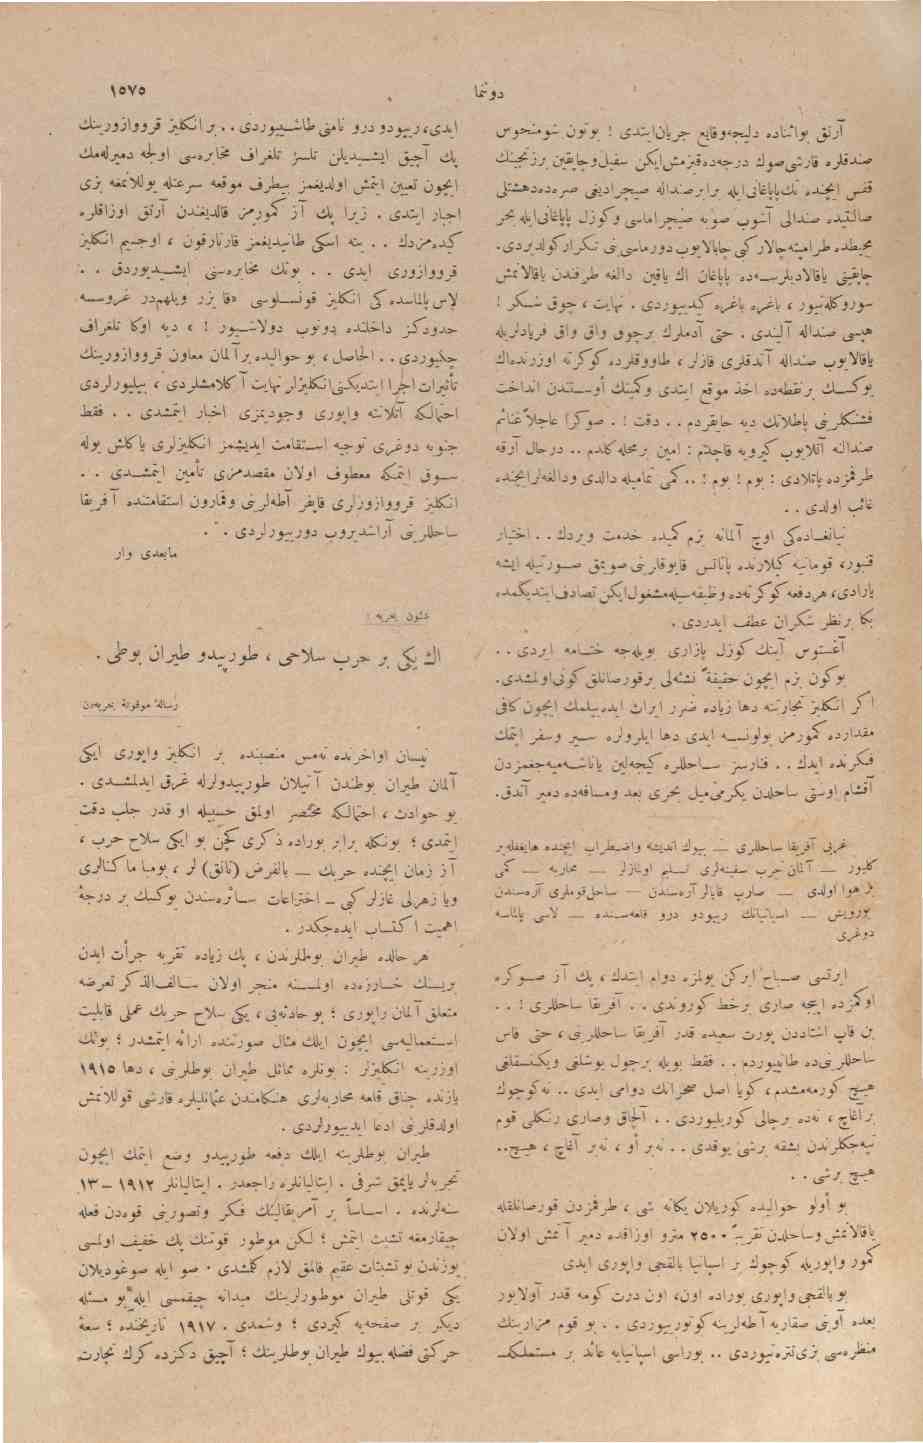 دوننما
١٥٧٥
آرتق بواثناده دلیجه‌وقایع جریان‌ایتدی ! بوتون شومنحوس
صندقلره قارشی‌صوك درجه‌ده‌قیزمش‌ایکن سفیل‌وچاپقین برزنجینك
قفس ایچنده نك‌پاپاغانی‌ایله برابرصنداله صیچرادیغی صره‌ده‌دهشتلی
صالنتیده صندالی آشوب صویه صیچراماسی وکوزل پاپاغانی‌ایله بحر
محیطده طرامپته‌چالارکبی چابالایوب دورماسی‌نی تکرارکولدیردی.
چاپقینی یاقالادیلرسه‌ده پاپاغان اك یاقین دالغه طرفندن یاقالانمش
سوروکله‌نیور ، باغیره باغیره کیدییوردی . نهایت ، چوق شکر !
هپسی صنداله آلیندی . حتی آدملرك برچوق واق واق فریادلریله
یاقالایوب صنداله آتدقلری قازلر ، طاووقلرده کوکرته اوزرنده‌اك
یوکسك برنقطه‌ده اخذ موقع ایتدی وکمینك أوستندن انداخت
فشنکلرنی پاطلاتك دیه حایقردم . . دقت ! . صوکرا عاجلاً غنائم
صندالنه آتلایوب کیرویه قاچدم : امین برمحله کلدم .. درحال آرقه
طرفمزده پاتلادی : بوم ! بوم ! .. کمی تمامیله دالدی ودالغه‌لرایچنده
غائب اولدی . .
نیانغاده‌کی اوچ آلمانه بزم کمیده خدمت ویردك . . اختیار
قنبور، قومانیه کیلارنده پاتاتس قابوقلرنی‌صویمق صورتیله ایشه
یارادی، هردفعه کوکرته‌ده وظیفه‌سیله‌مشغول‌ایکن تصادف‌ایتدیکمده
بکا برنظر شکران عطف ایدردی .
آغستوس آینك کوزل پازاری بویله‌جه ختامه ایردی . .
بوکون بزم ایچون حقیقةً نشئه‌لی برقورصانلق کونی‌اولمشدی.
اکر انکلیز تجارتنه دها زیاده ضرر ایراث ایده‌بیلمك ایچون کافی
مقدارده کمورمز بولونسه ایدی دها ایلرولره سیر وسفر ایتمك
فکرنده ایدك . . فنارسز ساحللره کیجه‌لین یاناشه‌میه‌جغمزدن
آقشام اوستی ساحلدن یکرمی‌میل بحری بعد ومسافه‌ده دمیر آتدق.
غربی آفریقا ساحللری — بیوك اندیشه واضطراب ایچنده هایغفله‌بر
کلیور — آلمان حرب سفینه‌لری تسلیم اولنازلر — محاربه — کمی
بر هوا اولدی — صارپ قایالر آره‌سندن — ساحل‌قوملری آره‌سندن
یورویش — اسپانیانك ریبودو درو قلعه‌سنده — لاسی پالماسه
دوغری
ایرتسی صباح ایرکن یولمزه دوام ایتدك ، پك آز صوکره
اوکمزده اینجه صاری برخط کوروندی . . آفریقا ساحللری ! . .
بن قاپ اشتاددن پورت سعیده قدر آفریقا ساحللرنی ، حتی فاس
ساحللرنی‌ده طانییوردم . . فقط بویله برچول بوشلغی ویکنسقلغی
هیچ کورمه‌مشدم ، کویا اصل صحرانك دوامی ایدی .. نه‌کوچوك
برآغاچ ، نه‌ده برچالی کوریلیوردی . . آلچاق وصاری رنکلی قوم
تپه‌جکلرندن بشقه برشی یوقدی . . نه‌بر أو ، نه‌بر آغاچ ، هیچ..
هیچ برشی . .
بو أولو حوالیده کوریلان یکانه شی ، طرفمزدن قورصانلقله
یاقالانمش وساحلدن تقریباً ٢٥٠٠ مترو اوزاقده دمیر آتمش اولان
کمور واپوریله کوچوك بر اسپانیا بالقجی واپوری ایدی
بو بالقجی واپوری بوراده اون، اون درت کومه قدر آولایور
بعده آونی صقاریه آطه‌لرینه کوتورییوردی . . بو قوم مزارینك
منظره‌سی بزی‌تتره‌تیوردی .. بوراسی اسپانیایه عائد بر مستملکه
ایدی، ریبودو درو نامنی طاشییوردی . . بر انکلیز قرووازورینك
پك آچیق ایشیدیلن تلسز تلغراف مخابره‌سی اولجه دمیرله‌مك
ایچون تعیین ایتمش اولدیغمز بیطرف موقعه سرعتله یوللانمغه بزی
اجبار ایتدی . زیرا پك آز کمورمز قالدیغندن آرتق اوزاقلره
کیده‌مزدك . . ینه اسکی طانیدیغمز قارنارقون ، اوجسیم انکلیز
قرووازوری ایدی . . بونك مخابره‌سنی ایشیدیوردق . .
لاس پالماسده کی انکلیز قونسلوسی «قایزر ویلهلم‌در غروسه
حدودکز داخلنده دونوب دولاشیور ! » دیه اوکا تلغراف
چکیوردی . . الحاصل ، بو حوالیده برآلمان معاون قرووازورینك
تأثیرات اجرا ایتدیکنی انکلیزلر نهایت آکلامشلردی ، بیلیورلردی
احتمالکه آتلانته واپوری وجودیمزی اخبار ایتمشدی . . فقط
جنوبه دوغری توجیه استقامت ایدیشمز انکلیزلری یاکلش یوله
سوق ایتمکه معطوف اولان مقصدمزی تأمین ایتمشدی . .
انکلیز قرووازورلری قاپفر آطه‌لرینی وقمارون استقامتنده آفریقا
ساحللرینی آراشدیروب دوریورلردی . .
مابعدی وار
شئون بحریه :
اك یکی بر حرب سلاحی ، طورپیدو طیران بوطی .
رسالهٔ موقوتهٔ بحریه‌دن
نیسان اواخرنده ته‌مس منصبنده بر انکلیز واپوری ایکی
آلمان طیران بوطندن آتیلان طورپیدولرله غرق ایدلمشدی .
بو حوادث ، احتمالکه مختصر اولمق حسبیله او قدر جلب دقت
ایتمدی ؛ بونکله برابر بوراده ذکری کچن بو ایکی سلاح حرب ،
آز زمان ایچنده حربك — بالفرض (تانق) لر ، بومبا ماکنالری
ویا زهرلی غازلر کبی — اختراعات سائره‌سندن یوکسك بر درجهٔ
اهمیت اکتساب ایده‌جکدر .
هر حالده طیران بوطلرندن ، پك زیاده تقربه جرأت ایدن
بریسنك خساره‌زده اولمسنه منجر اولان سالف‌الذکر تعرضه
متعلق آلمان راپوری ؛ بو حادثه‌یی ، یکی سلاح حربك عملی قابلیت
استعمالیه‌سی ایچون ایلك مثال صورتنده ارائه ایتمشدر ؛ بونك
اوزرینه انکلیزلر : بونلره مماثل طیران بوطلرنی ، دها ١٩١٥
یازنده چناق قلعه محاربه‌لری هنکامندن عثمانلیلره قارشی قوللانمش
اولدقلرینی ادعا ایدییورلردی .
طیران بوطلرینه ایلك دفعه طورپیدو وضع ایتمك ایچون
تجربه‌لر یاپمق شرفی . ایتالیانلره راجعدر . ایتالیانلر ١٩١٢ – ١٣
سنه‌لرنده . اساساً بر آمریقالینك فکر وتصورینی قوه‌دن فعله
چیقارمغه تشبث ایتمش ؛ لکن موطور قوتنك پك خفیف اولمسی
یوزندن بو تشبثات عقیم قالمق لازم کلمشدی . صو ایله صوغودیلان
یکی قوتلی طیران موطورلرینك میدانه چیقمسی ایله بو مسئله
دیکر بر صفحه‌یه کیردی ؛ وشمدی . ١٩١٧ تاریخنده ؛ سعهٔ
حرکتی فضله بیوك طیران بوطلرینك ؛ آچیق دکزده کرك تجارت